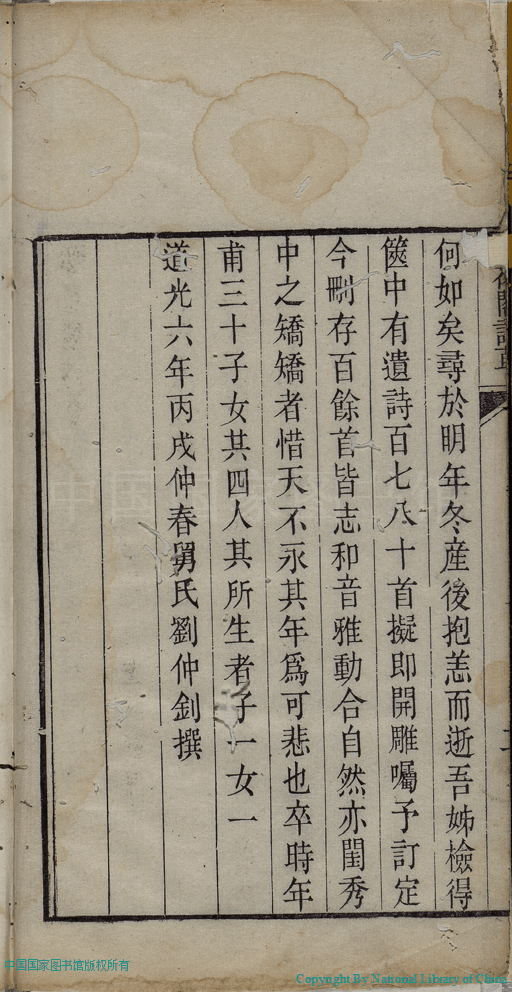 何如矣尋於明年冬產後抱恙而逝吾姊檢得
篋中有遺詩百七八十首擬即開雕囑予訂定
今刪存百餘首皆志和音雅動合自然亦閨秀
中之矯矯者惜天不永其年為可悲也卒時年
甫三十子女其四人其所生者子一女一
道光六年丙戌仲春舅氏劉仲釗撰
中国国家图书馆版权所有
Copyright By National Library of China